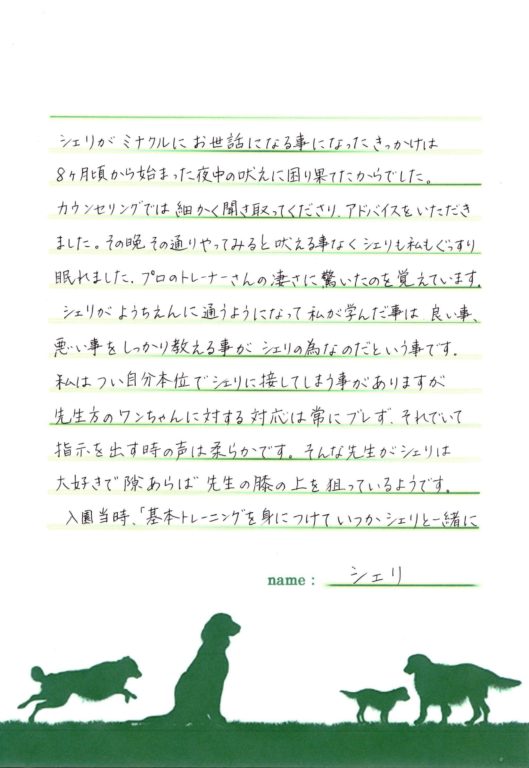 シェリが ミナクルに お世話になる事になった きっかけは
8ヶ月頃から始まった夜中の吠えに困り果てたからでした。
カウンセリングでは 細かく聞き取ってくださり、アドバイスをいただき
ました。その晩 その通りやってみると 吠える事なく シェリも私もぐっすり
眠れました。プロのトレーナーさんの凄さに 驚いたのを覚えています。
シェリが ようちえんに通うようになって 私が学んだ事は 良い事、
悪い事を しっかり教える事が シェリの為なのだという事です。
私は つい自分本位で シェリに接してしまう事がありますが
先生方のワンちゃんに対する 対応は 常に ブレず、それでいて
指示を出す時の声は柔らかです。そんな先生が シェリは
大好きで 隙あらば 先生の膝の上を 狙っているようです。
入園当時、「基本トレーニングを身につけて いつか シェリと一緒に
name : シェリ